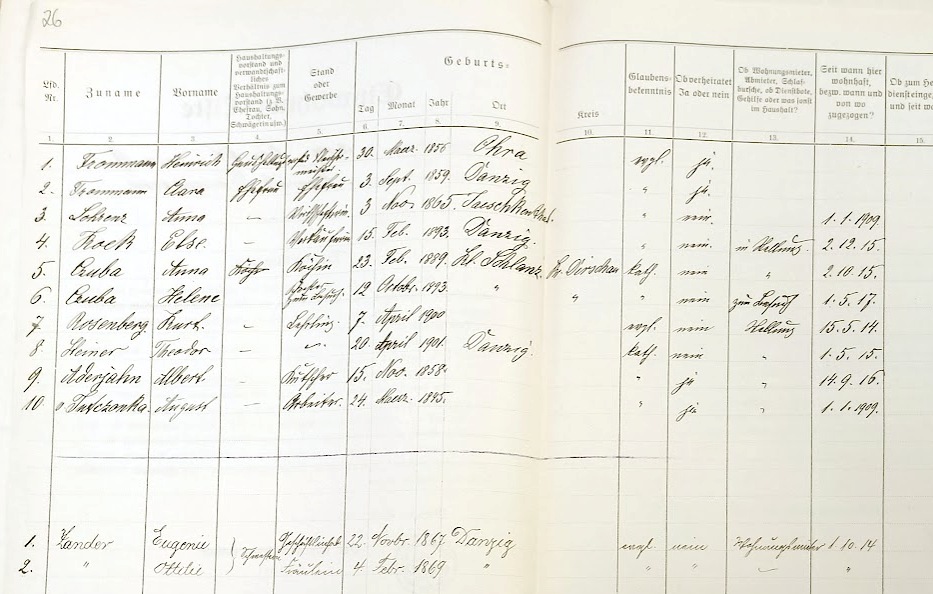 26
Lfd. Nr. Zuname Vorname Haushaltungs-vorstand und verwandtschaft-liches Verhältnis zum Haushaltungs-vorstand (z. B. Ehefrau, Sohn, Tochter, Schwägerin usw.) Stand oder Gewerbe Geburts- Tag Monat Jahr Ort Kreis Glaubens-bekenntnis Ob verheiratet Ja oder nein Ob Wohnungsmieter, Abmieter, Schlaf-bursche, ob Dienstbote, Gehilfe oder was sonst im Haushalt? Seit wann hier wohnhaft, bezw. wann und von wo zugezogen? Ob zum He diensteinge und seit we
1. 2. 3. 4. 5. 6. 7. 8. 9. 10. 11. 12. 13. 14. 15.
1. Trommann Heinrich 30. März 1856 Ohra evgl. ja.
2. Trommann Clara Ehefrau Ehefrau 3. Sept. 1859. Danzig " ja.
3. Lohrenz Anna — Wirtschafterin 3 Nov. 1865. " nein. 1.1.1909.
4. Kock Else. — Verkäuferin 15. Feb. 1893. Danzig. " nein. in Stellung 2.12.15.
5. Czuba Anna Köchin 23. Feb. 1889. Kl. Schlanz Kr. Dirschau kath. nein " 2.10.15.
6. Czuba Helene zum Besuch. 12 Octbr. 1893. " " " nein zum Besuch 1.5.17.
7. Rosenberg Kurt. — Lehrling. 7. April 1900 evgl. nein Stellung 15.5.14.
8. Heiner Theodor — " 20. April 1901. Danzig. kath. nein " 1.5.15.
9. Aderjahn Albert. — Kutscher 15. Nov. 1858. " ja " 14.9.16.
10. August — Arbeiter. 24. März. " ja " 1.1.1909.
1. Zander Eugenie } Schwestern 22. Novbr. 1867. Danzig evgl. nein Wohnungsmieter 1.10.14
2. " Ottilie Fräulein 4. Febr. 1869 " " " — "